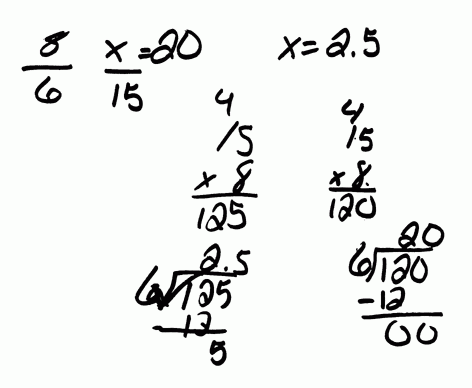 8 x = 20 x = 2.5
6 15
4 4
15 15
x 8 x 8
125 120
2.5 20
6)125 6)120
12 -12
5 00